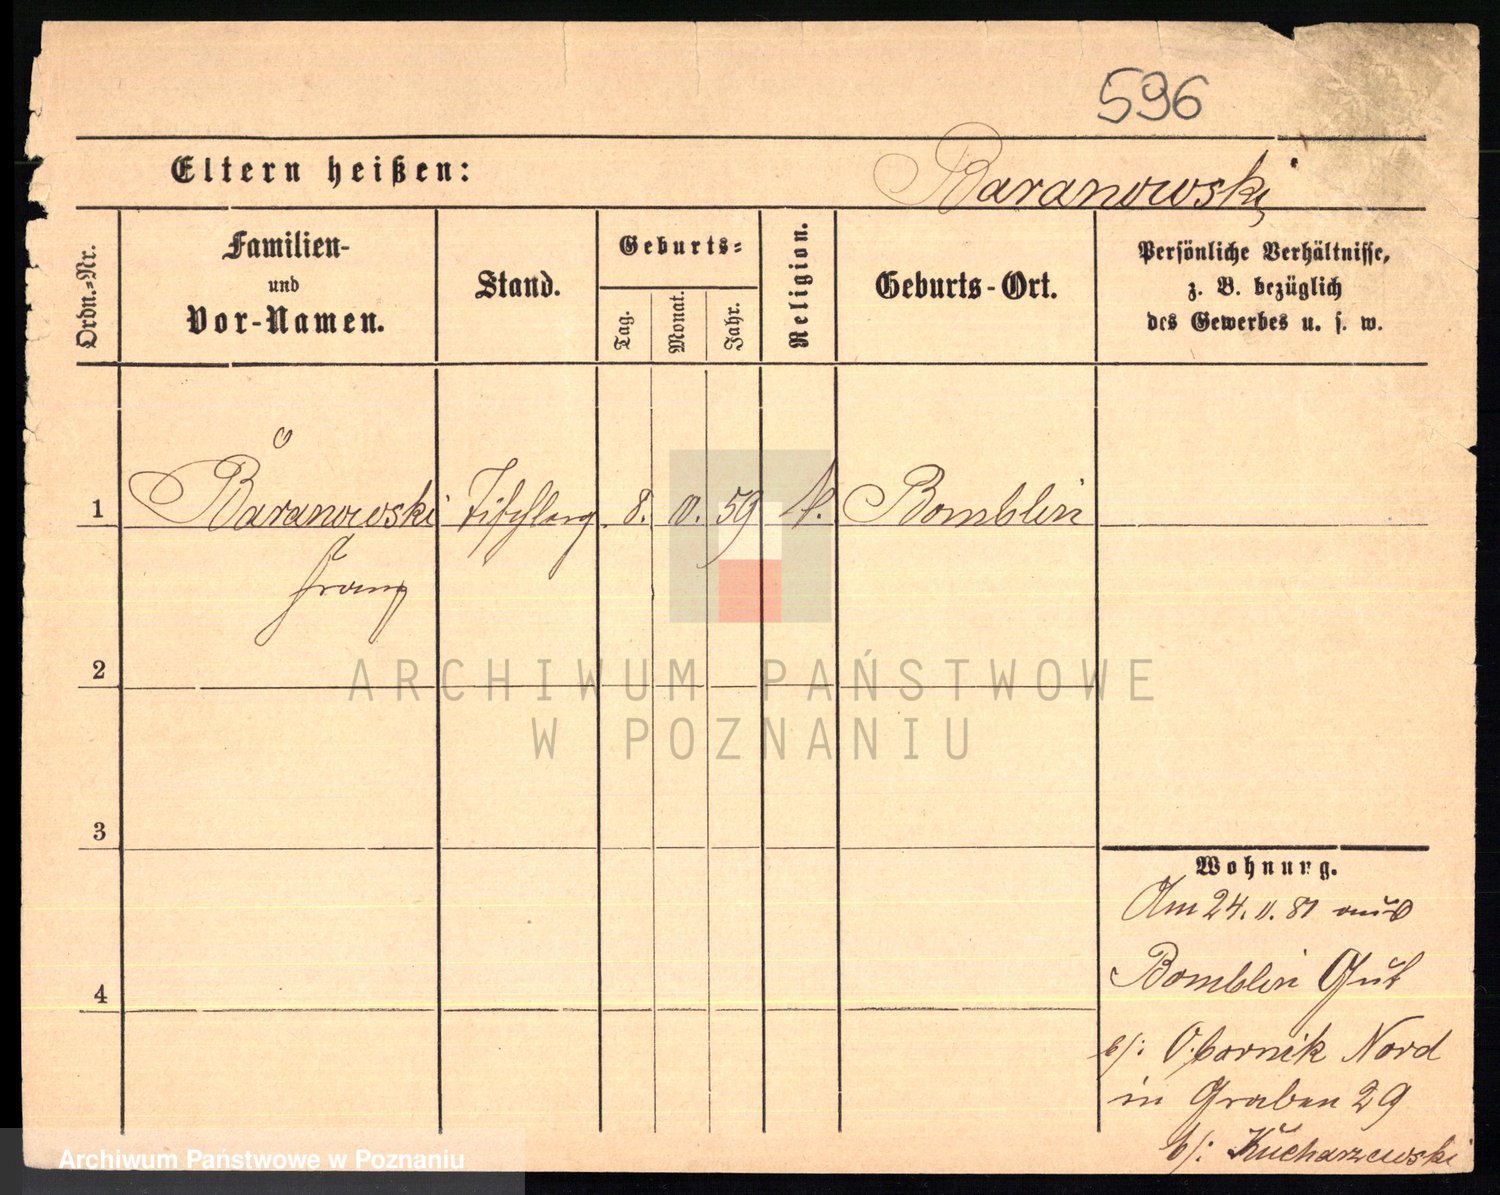 596
Eltern heißen:
Baranowski
Ordn.-Nr.
Familien-
und
Vor-Namen.
Stand.
Geburts-
Tag.
Monat.
Jahr.
Religion.
Geburts-Ort.
Persönliche Verhältnisse,
z. B. bezüglich
des Gewerbes u. s. w.
1 Baranowski Tischlerg. 8. 59 Bomblin
Franz
2
3
4
Wohnung.
Am 24. 11. 81 aus
Bomblin Gut
b/: Obornik Nord
in Graben 29
b/: Kucharzewski
ARCHIWUM PAŃSTWOWE
W POZNANIU
Archiwum Państwowe w Poznaniu